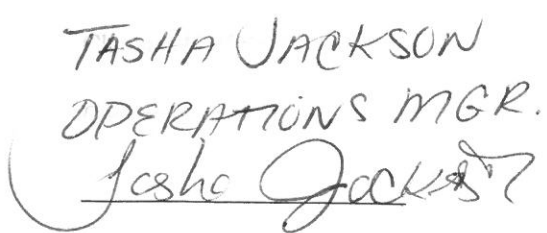 TASHA JACKSON
OPERATIONS MGR.
Tasha Jackson